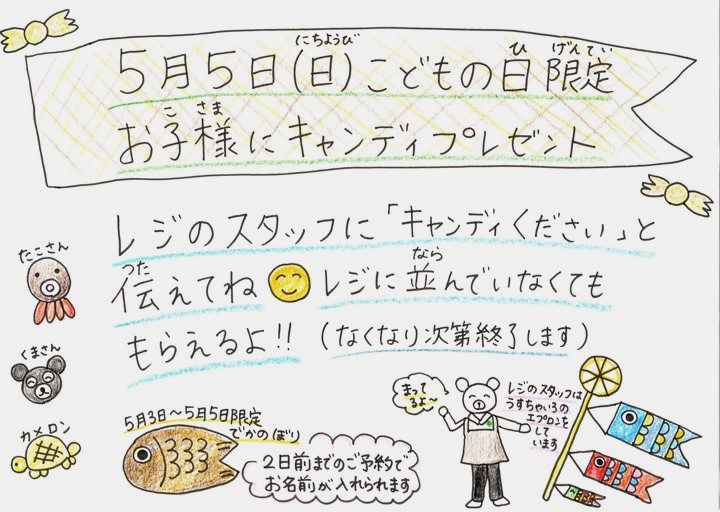 にちようび
ひ げんてい
5月5日(日)こどもの日 限定
こ さま
お子様にキャンディプレゼント
レジのスタッフに「キャンディください」と
つた
伝えてね
なら
レジに並んでいなくても
もらえるよ!!(なくなり次第終了します)
たこさん
くまさん
カメロン
5月3日〜5月5日限定
でかのぼり
2日前までのご予約で
お名前が入れられます
まって
るよ〜
レジのスタッフは
うすちゃいろの
エプロンを
して
います